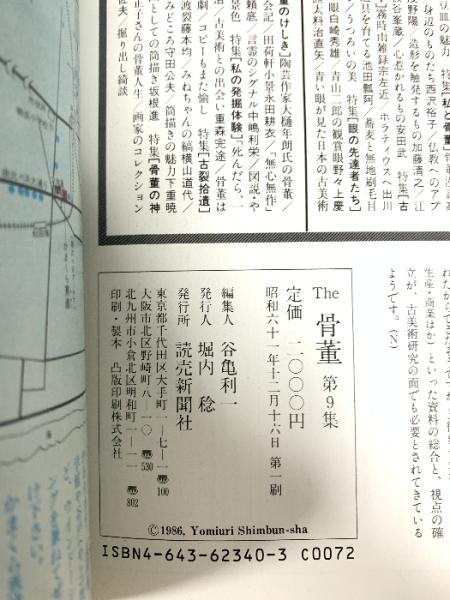 豆皿の魅力 特集【私と骨董】
身辺のものたち西沢裕子/仏教へのアプ
浅野陽/造形を触発するもの加藤清之/江
谷峯蔵/心惹かれるもの安田武 特集【古
】霧時雨雑録宗左近/ホラティウスへ出川
具を育てる池田瓢阿/蕎麦と無地刷毛目
/うつろいの美 特集【眼の先達者たち】
眼白崎秀雄/青山二郎の観賞眼野々上慶
大料治直矢/青い眼が見た日本の古美術
董のけしき】陶芸作家大樋年朗氏の骨董/
会記 田荷軒小景永田耕衣/「無心無作」
頼底/言霊のシグナル中嶋利栄/図説・や
景色 特集【私の発掘体験】「死んだら、一
/古美術との出会い重森完途/骨董は
劇/コピーもまた愉し 特集【古裂拾遺】
渡裂藤本均/みねちゃんの縞横山道代/
みどころ守田公夫/筒描きの魅力下重暁
としての筒描き坂根進 特集【骨董の神
正子さんの骨董人生/画家のコレクション
佐夫/掘り出し綺談
生産・商業ほか)といった資料の総合と、視点の確
立が、古美術研究の面でも必要とされてきている
ようです。(N)
The 骨董 第9集
昭和六十一年十二月十六日 第一刷
定価 二〇〇〇円
編集人 谷亀利一
発行人 堀内 稔
発行所 読売新聞社
東京都千代田区大手町一-七-一 〠100
大阪市北区野崎町八-一〇 〠530
北九州市小倉北区明和町一-一一 〠802
印刷・製本 凸版印刷株式会社
©1986, Yomiuri Shimbun-sha
ISBN4-643-62340-3 C0072